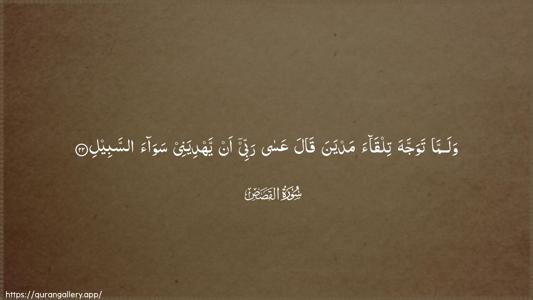 وَلَـمَّا تَوَجَّهَ تِلْقَآءَ مَدْيَنَ قَالَ عَسٰى رَبِّىْٓ اَنْ يَّهْدِيَنِىْ سَوَآءَ السَّبِيْلِ ۝٢٢
سُوْرَةُ الْقَصَصِ
https://qurangallery.app/